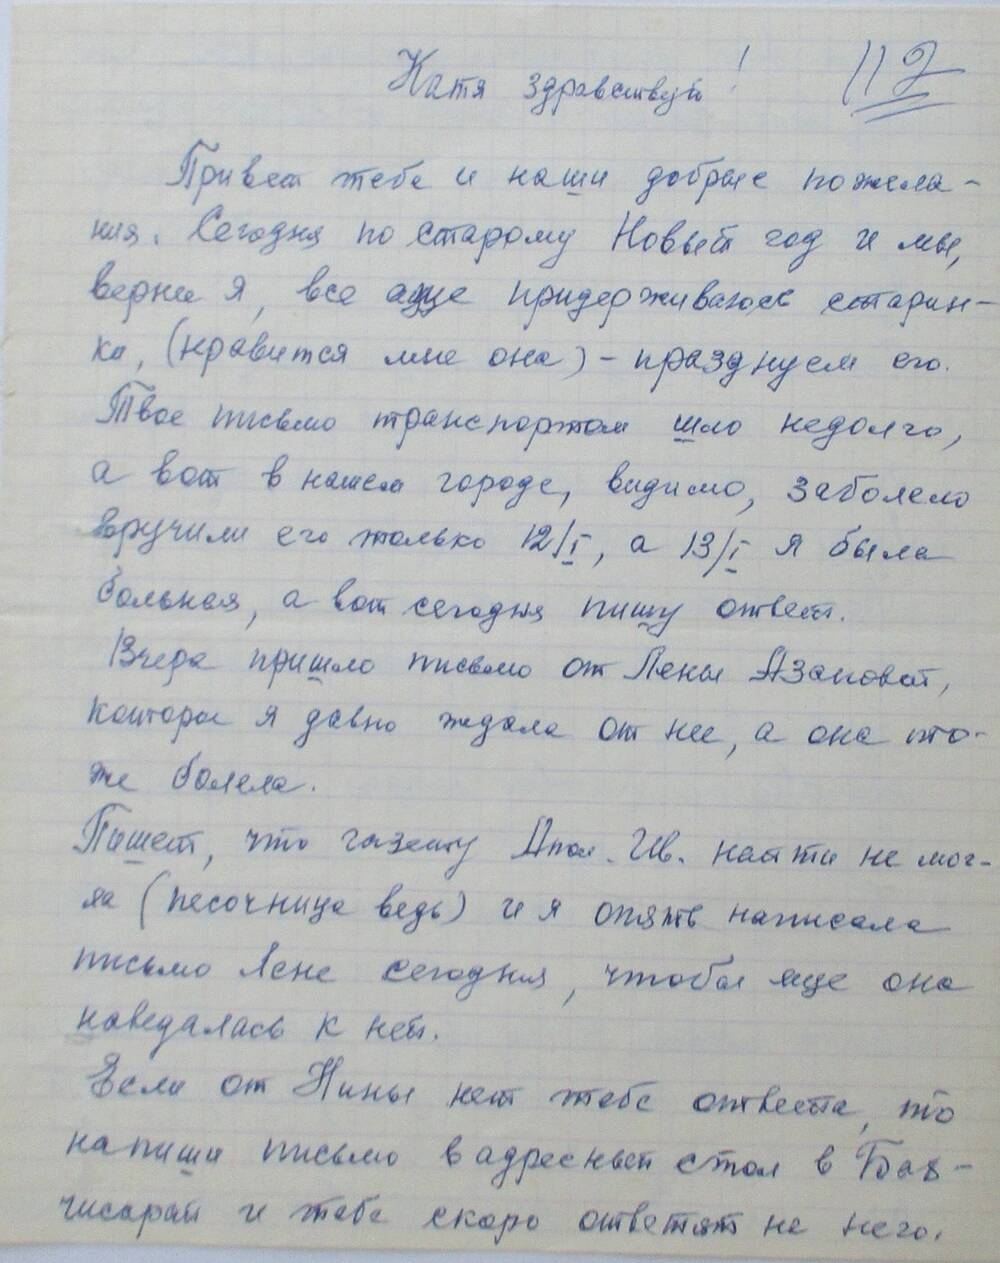 Катя здравствуй! 112
Привет тебе и наши добрые пожела-
ния. Сегодня по старому Новый год и мы,
верне я, все еще придерживаюсь старин-
ка, (нравится мне она) – празднуем его.
Твое письмо транспортом шло недолго,
а вот в нашем городе, видимо, заболело
вручили его только 12/I, а 13/I я была
больная, а вот сегодня пишу ответ.
Вчера пришло письмо от Лены Азаповой,
которое я давно ждала от нее, а она то-
же болела.
Пишет, что газету Апол. Ив. найти не мог-
ла (песочница ведь) и я опять написала
письмо Лене сегодня, чтобы еще она
наведалась к ней.
Если от Нины нет тебе ответа, то
напиши письмо в адресный стол в Бах-
чисарай и тебе скоро ответят на него.